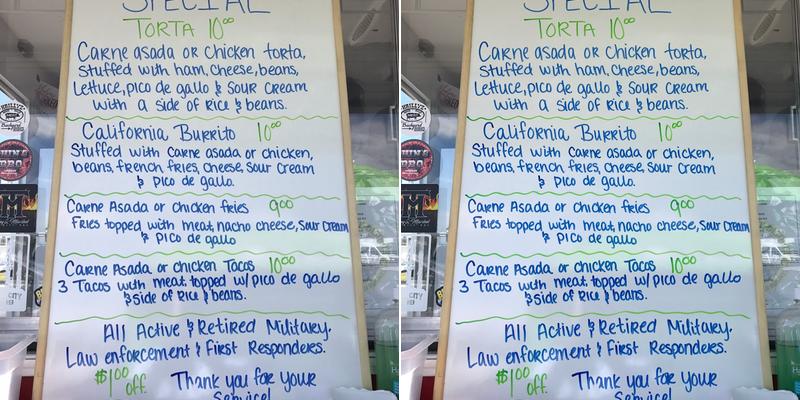 SPECIAL
TORTA 10⁰⁰
Carne asada or chicken torta,
Stuffed with ham, cheese, beans,
Lettuce, pico de gallo & Sour Cream
with a side of Rice & beans.
California Burrito 10⁰⁰
Stuffed with Carne asada or chicken,
beans, french fries, cheese, Sour Cream
& pico de gallo.
Carne Asada or chicken fries 9⁰⁰
Fries topped with meat, nacho cheese, Sour Cream
& pico de gallo
Carne Asada or chicken Tacos 10⁰⁰
3 Tacos with meat, topped w/ pico de gallo
& side of Rice & beans.
All Active & Retired Military.
Law enforcement & First Responders.
$1⁰⁰ off. Thank you for your
Service!
SPECIAL
TORTA 10⁰⁰
Carne asada or chicken torta,
Stuffed with ham, cheese, beans,
Lettuce, pico de gallo & Sour Cream
with a side of Rice & beans.
California Burrito 10⁰⁰
Stuffed with Carne asada or chicken,
beans, french fries, cheese, Sour Cream
& pico de gallo.
Carne Asada or chicken fries 9⁰⁰
Fries topped with meat, nacho cheese, Sour Cream
& pico de gallo
Carne Asada or chicken Tacos 10⁰⁰
3 Tacos with meat, topped w/ pico de gallo
& side of Rice & beans.
All Active & Retired Military.
Law enforcement & First Responders.
$1⁰⁰ off. Thank you for your
Service!